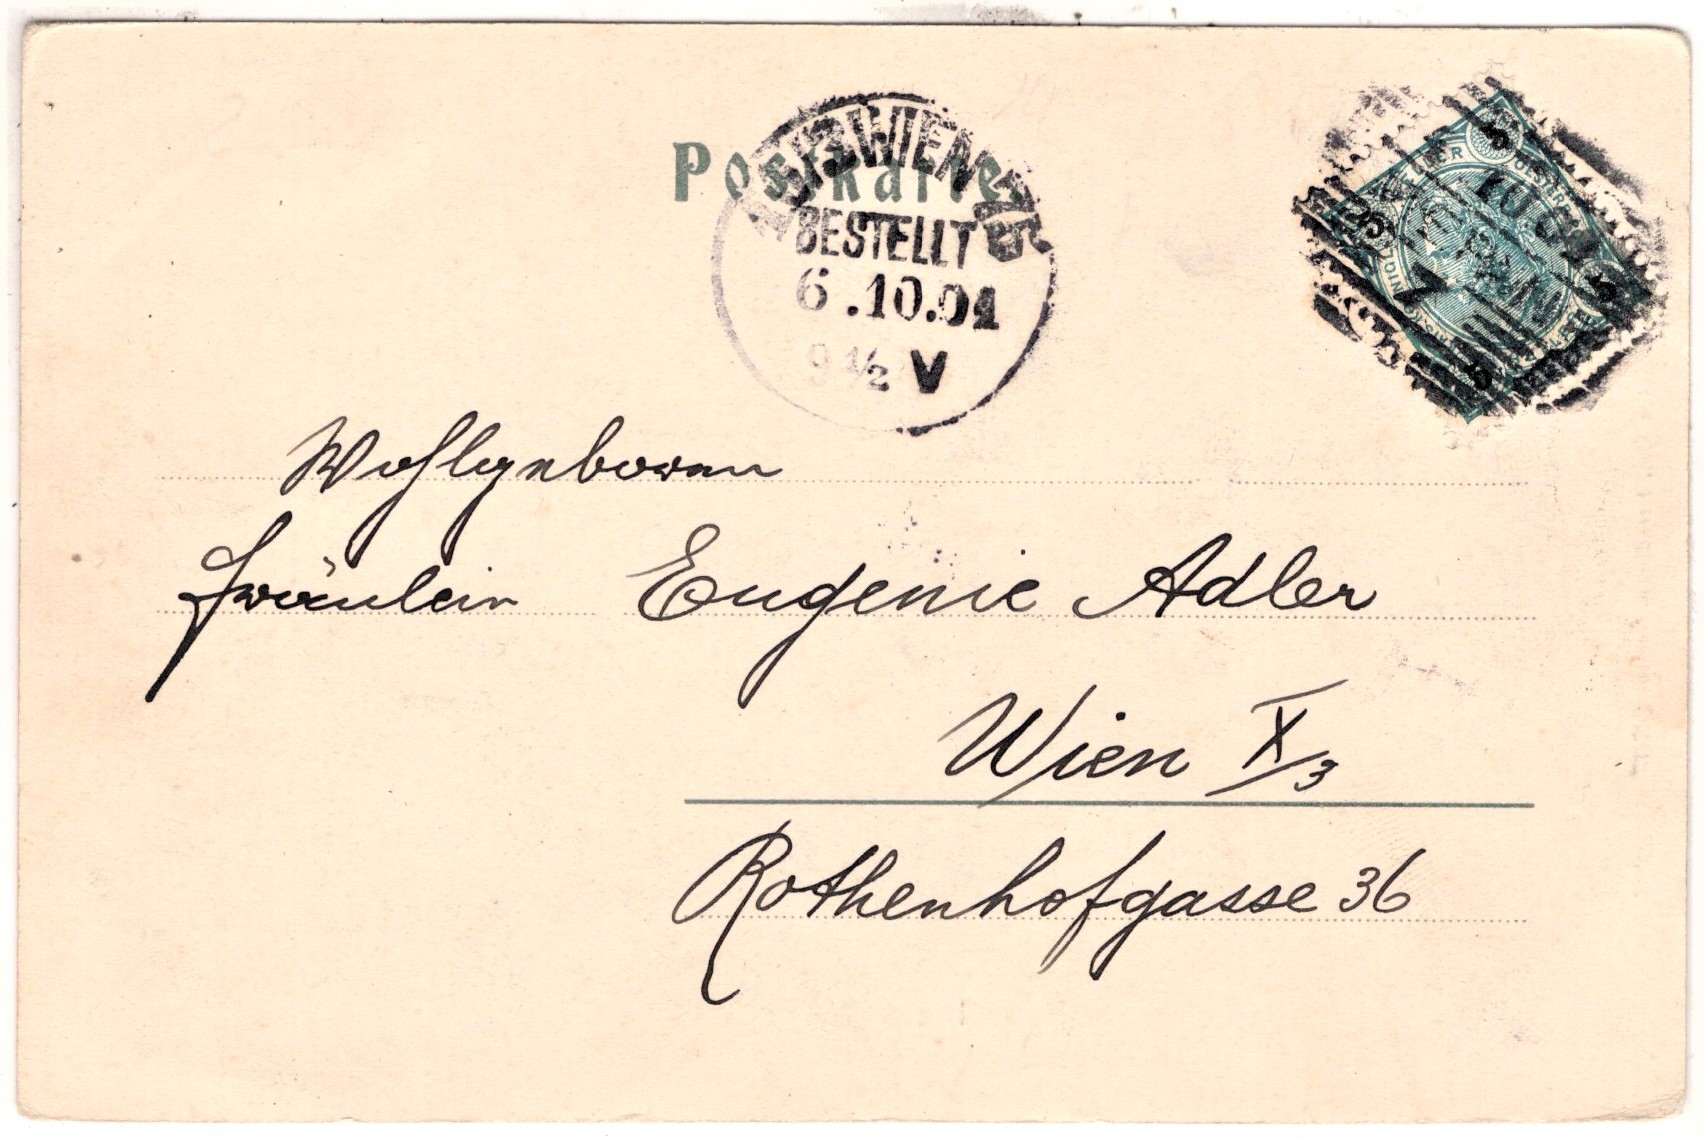 Postkarte
WIEN
BESTELLT
6.10.01
9½ V
5
5
5
Wohlgeboren
Fräulein Eugenie Adler
Wien X/3
Rothenhofgasse 36